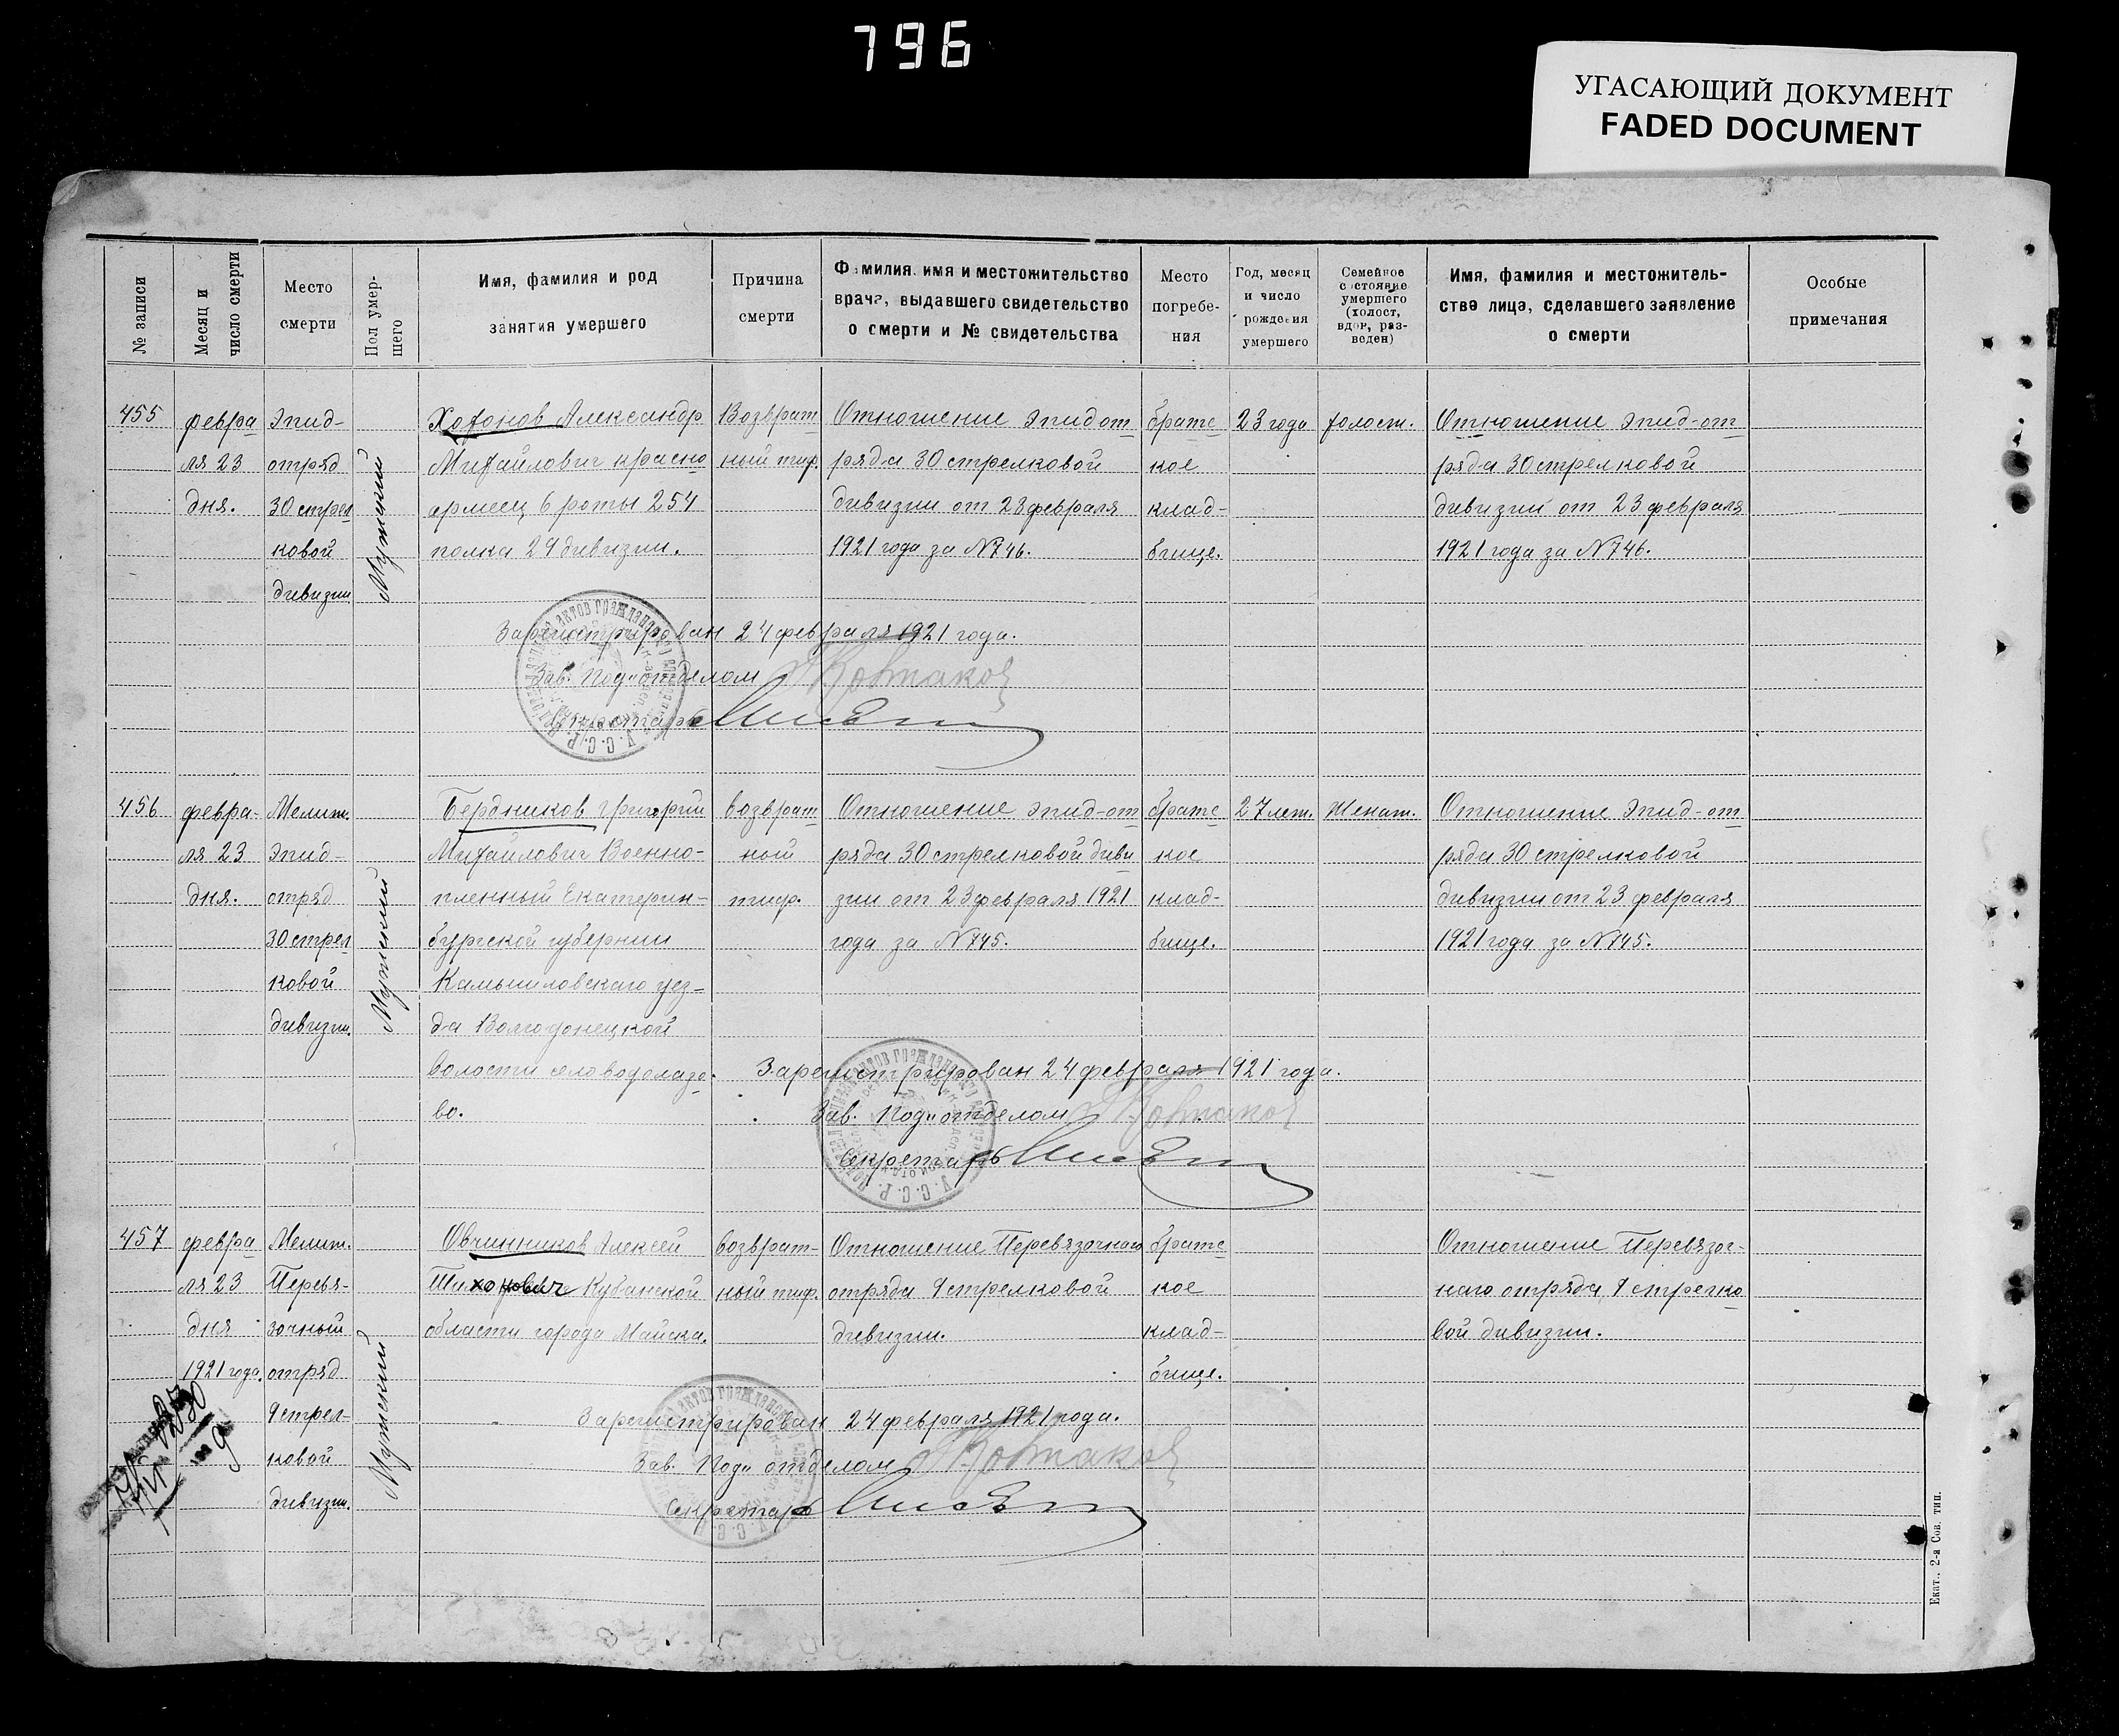 796
УГАСАЮЩИЙ ДОКУМЕНТ
FADED DOCUMENT
№ записи
Месяц и
число смерти
Место
смерти
Пол умер-
шего
Имя, фамилия и род
занятия умершего
Причина
смерти
Фамилия, имя и местожительство
врача, выдавшего свидетельство
о смерти и № свидетельства
Место
погребе-
ния
Год, месяц
и число
рождения
умершего
Семейное
состояние
умершего
(холост,
вдов, раз-
веден)
Имя, фамилия и местожитель-
ство лица, сделавшего заявление
о смерти
Особые
примечания
455
февра
ля 23
дня.
Эпид-
отряд
30 стрел
ковой
дивизии
Мужский
Хатонов Александр
Михайлович красно
армеец 6 роты 254
полка 29 дивизии.
Возврат
ный тиф.
Отношение эпидот
ряда 30 стрелковой
дивизии от 23 февраля
1921 года за №746.
братс
кое
клад-
бище.
23 года
холост.
Отношение эпид-от
ряда 30 стрелковой
дивизии от 23 февраля
1921 года за №746.
Зарегистрирован 24 февраля 1921 года.
Зав. Подъотделом
Секретарь
У.С.С.Р.
456
февра-
ля 23
дня.
Мелит.
Эпид-
отряд
30 стрел
ковой
дивизии.
Мужский
Бердников Григорий
Михайлович Военно-
пленный Екатерин-
бургской губернии
Камышловскаго уез-
да
волости
во.
возврат
ный
тиф.
Отношение эпид-от
ряда 30 стрелковой диви
зии от 23 февраля 1921
года за №745.
братс
кое
клад-
бище.
27 лет.
Женат.
Отношение эпид-от
ряда 30 стрелковой
дивизии от 23 февраля
1921 года за №745.
Зарегистрирован 24 февраля 1921 года.
Зав. Подъотделом
Секретарь
У.С.С.Р.
457
февра
ля 23
дня
1921 года.
Мелит.
Перевя-
зочный
отряд
9 стрел-
ковой
дивизии.
Мужский
Овчинников Алексей
Тихонович Кубанской
области города Майска.
возврат-
ный тиф.
Отношение Перевязочнаго
отряда 9 стрелковой
дивизии.
братс
кое
клад-
бище.
Отношение Перевязоч-
наго отряда 9 стрелко
вой дивизии.
Зарегистрирован 24 февраля 1921 года.
Зав. Подъ отделом
Секретарь
Екат., 2-я Сов. тип.